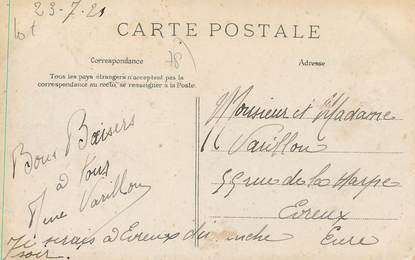 23-7-21
lot
CARTE POSTALE
78
Correspondance
Adresse
Tous les pays étrangers n'acceptent pas la
correspondance au recto, se renseigner à la Poste.
Bons Baisers
à tous
Mme Varillon
Monsieur et Madame
Varillon
55 rue de la Harpe
Evreux
Eure
J'y serais à Evreux dimanche
soir.